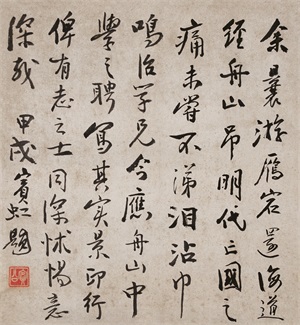 余曩游雁宕還海道
經舟山吊明代亡國之
痛未嘗不涕泪沾巾
鳴治学兄今應舟山中
學之聘寫其实景印行
俾有志之士同深怵惕意
深哉 甲戌賓虹題